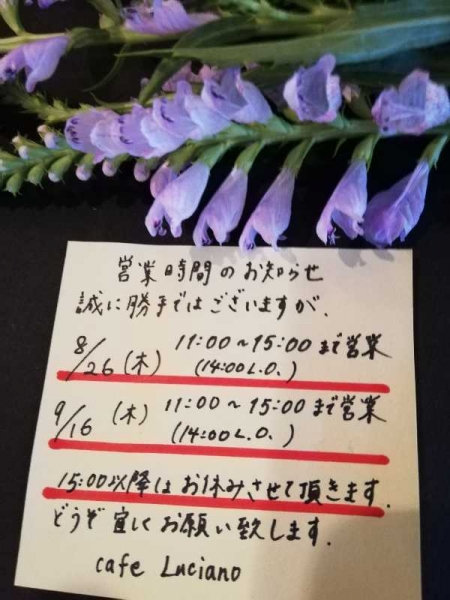 営業時間のお知らせ
誠に勝手ではございますが、
8/26(木) 11:00～15:00まで営業
(14:00L.O.)
9/16(木) 11:00～15:00まで営業
(14:00L.O.)
15:00以降はお休みさせて頂きます.
どうぞ宜しくお願い致します.
cafe Luciano